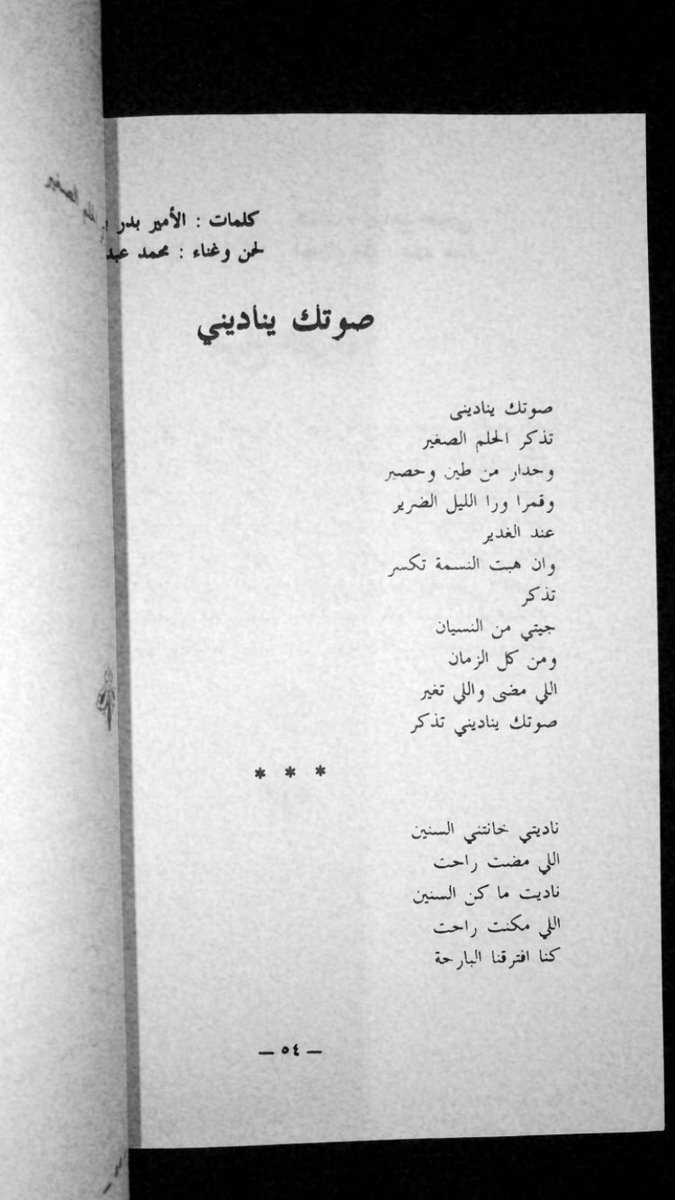 كلمات : الأمير بدر
لحن وغناء : محمد عبد
صوتك يناديني
صوتك ينادينى
تذكر الحلم الصغير
وحدار من طين وحصير
وقمرا ورا الليل الضرير
عند الغدير
وان هبت النسمة تكسر
تذكر
جيتي من النسيان
ومن كل الزمان
اللي مضى واللي تغير
صوتك يناديني تذكر
* * *
ناديتي خانتني السنين
اللي مضت راحت
ناديت ما كن السنين
اللي مكنت راحت
كنا افترقنا البارحة
— ٥٤ —